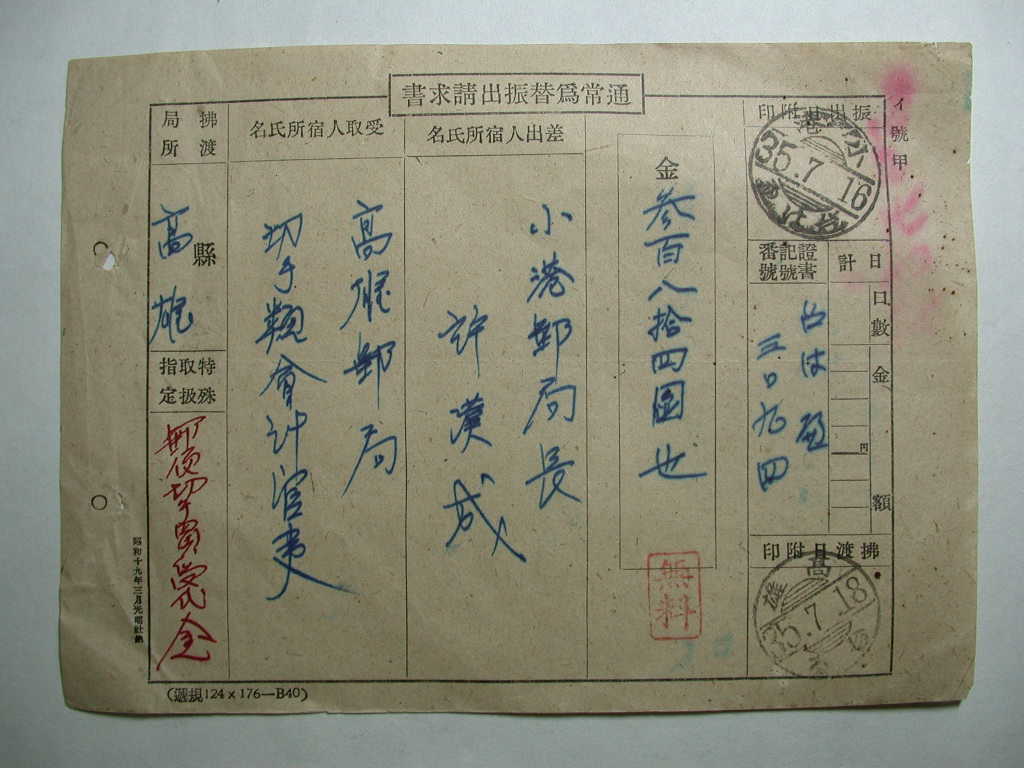 通常爲替振出請求書
イ號甲
振出日附印
小港
35.7.16
證書記號番號
ろは
三〇九四
日計
口數
金額
円
拂渡日附印
高雄
35.7.18
金
参百八拾四圓也
無料
差出人宿所氏名
小港郵局長
許漢成
受取人宿所氏名
高雄郵局
切手類會計官吏
拂渡局所
縣
高雄
特殊取扱指定
郵便切手買受代金
昭和十九年三月光明社納
(遞規124×176—B40)